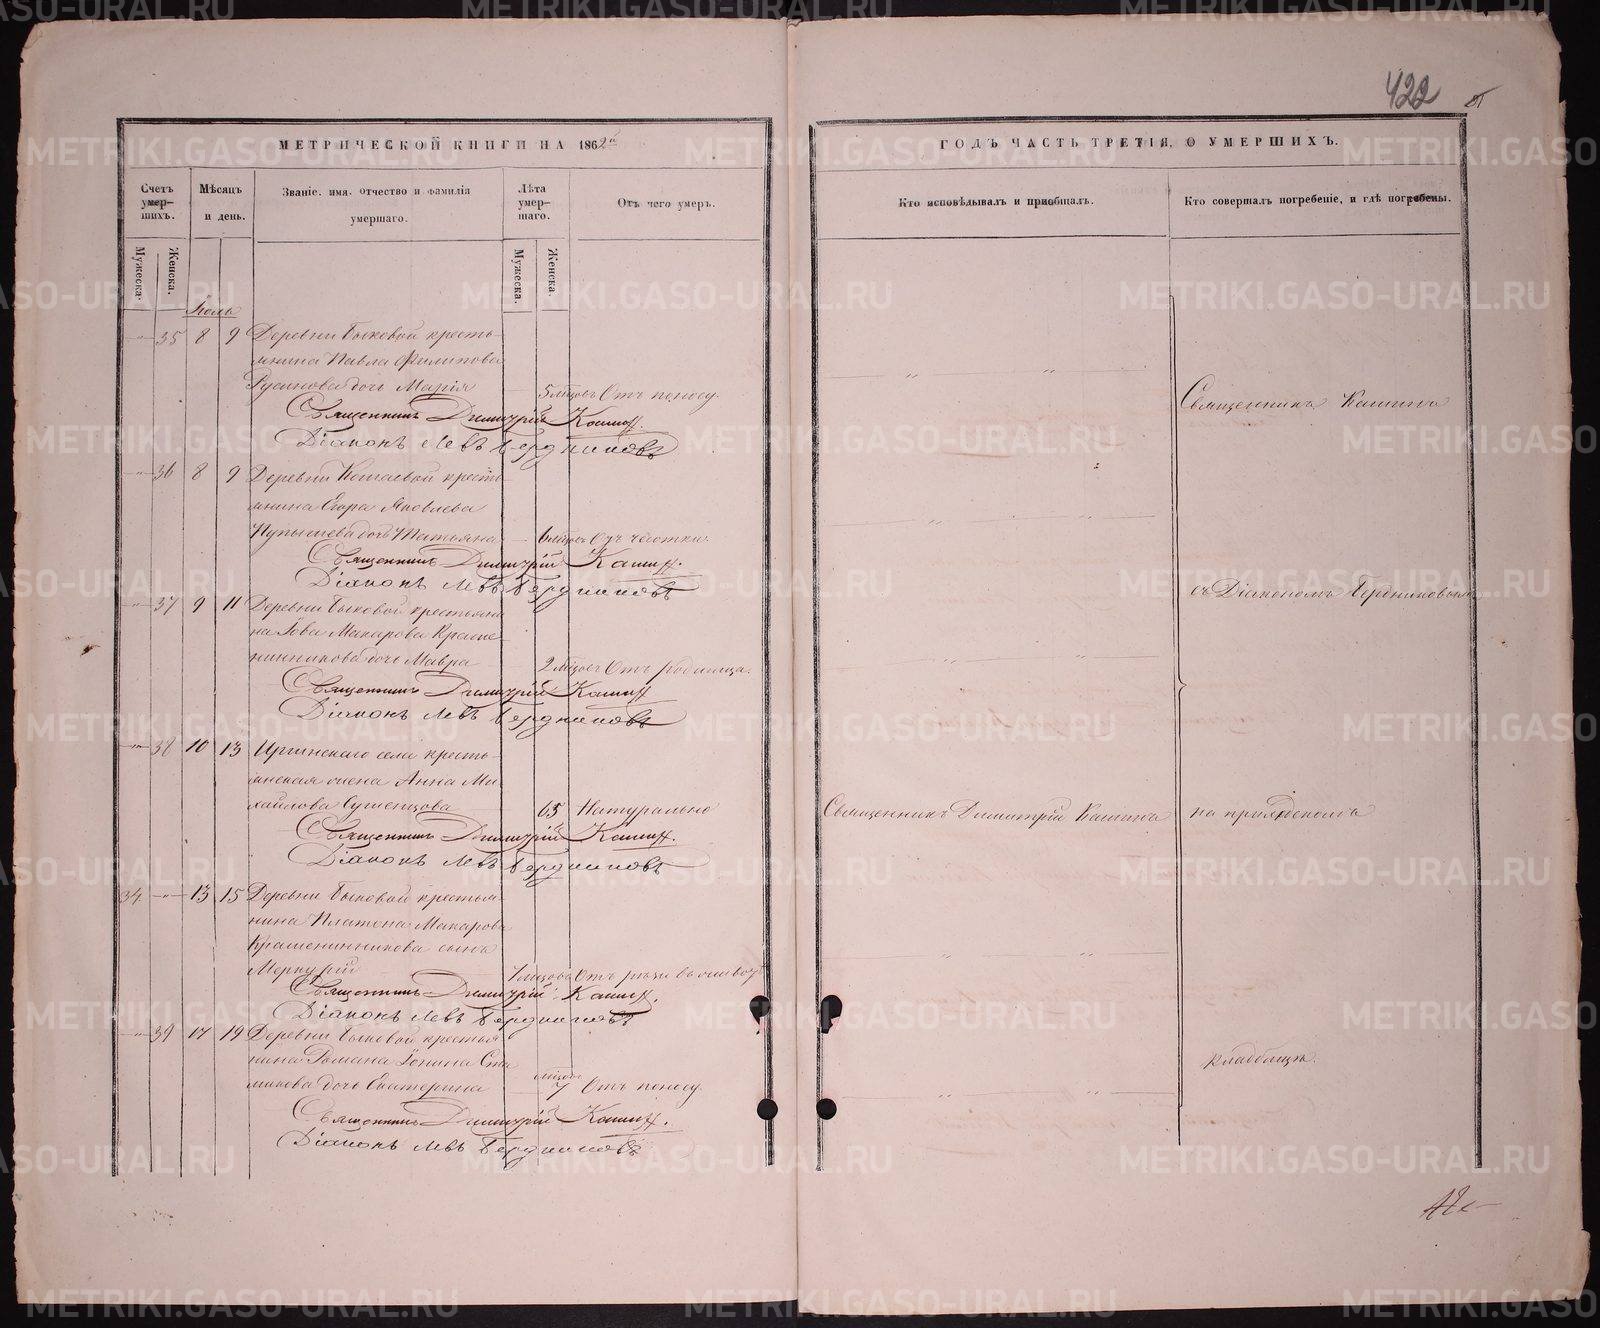 422
МЕТРИЧЕСКОЙ КНИГИ НА 1862й
ГОДЪ ЧАСТЬ ТРЕТІЯ, О УМЕРШИХЪ.
Счетъ умер-шихъ.
Мѣсяцъ и день.
Званіе, имя, отчество и фамилія умершаго.
Лѣта умер-шаго.
Отъ чего умеръ.
Кто исповѣдывалъ и пріобщалъ.
Кто совершалъ погребеніе, и гдѣ погребены.
Мужеска.
Женска.
Мужеска.
Женска.
35 8 9 Деревни Быковой кресть-
янина Павла Филипова
Русинова дочь Марія 5 мцовъ Отъ поносу.
Священникъ Димитрій Кашинъ.
Діаконъ Левъ Бердниковъ
Священникъ Кашинъ
36 8 9 Деревни Коташевой кресть-
янина Егора Яковлева
дочь Татьяна 6 мцовъ Отъ чесотки.
Священникъ Димитрій Кашинъ.
Діаконъ Левъ Бердниковъ
съ Діакономъ Бердниковымъ
37 9 11 Деревни Быковой крестьяни
на Іова Макарова Краше-
нинникова дочь Мавра 2 мцовъ Отъ родимца.
Священникъ Димитрій Кашинъ
Діаконъ Левъ Бердниковъ
38 10 13 Иргинскаго села кресть-
янская жена Анна Ми-
хайлова Сушенцова 65 Натурально
Священникъ Димитрій Кашинъ
на приходскомъ
Священникъ Димитрій Кашинъ.
Діаконъ Левъ Бердниковъ
34 13 15 Деревни Быковой крестья-
нина Платона Макарова
Крашенинникова сынъ
Меркурій 1 мцова Отъ рѣзи въ животѣ
Священникъ Димитрій Кашинъ.
Діаконъ Левъ Бердниковъ
39 17 19 Деревни Быковой крестья
нина Романа Іонина Ста
дочь Екатерина мцовъ 7 Отъ поносу.
кладбищѣ.
Священникъ Димитрій Кашинъ.
Діаконъ Левъ Бердниковъ
METRIKI.GASO-URAL.RU